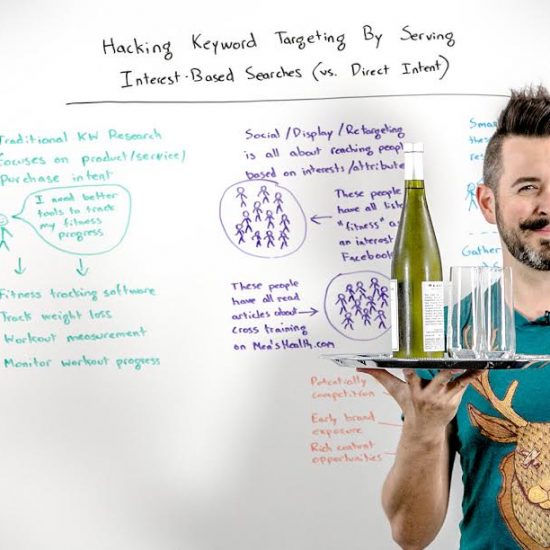 Hacking Keyword Targeting By Serving
Interest-Based Searches (vs. Direct Intent)
Traditional KW Research
focuses on product/service/
purchase intent
I need better
tools to track
my fitness
progress
Fitness tracking software
Track weight loss
Workout measurement
Monitor workout progress
Social/Display/Retargeting
is all about reaching people
based on interests/attribute
These people
have all liste
"fitness" a
an interest
Facebook
These people
have all read
articles about
cross training
on Men'sHealth.com
Potentially
competition
Early brand
exposure
Rich content
opportunities
Smar
thes
res
Gather